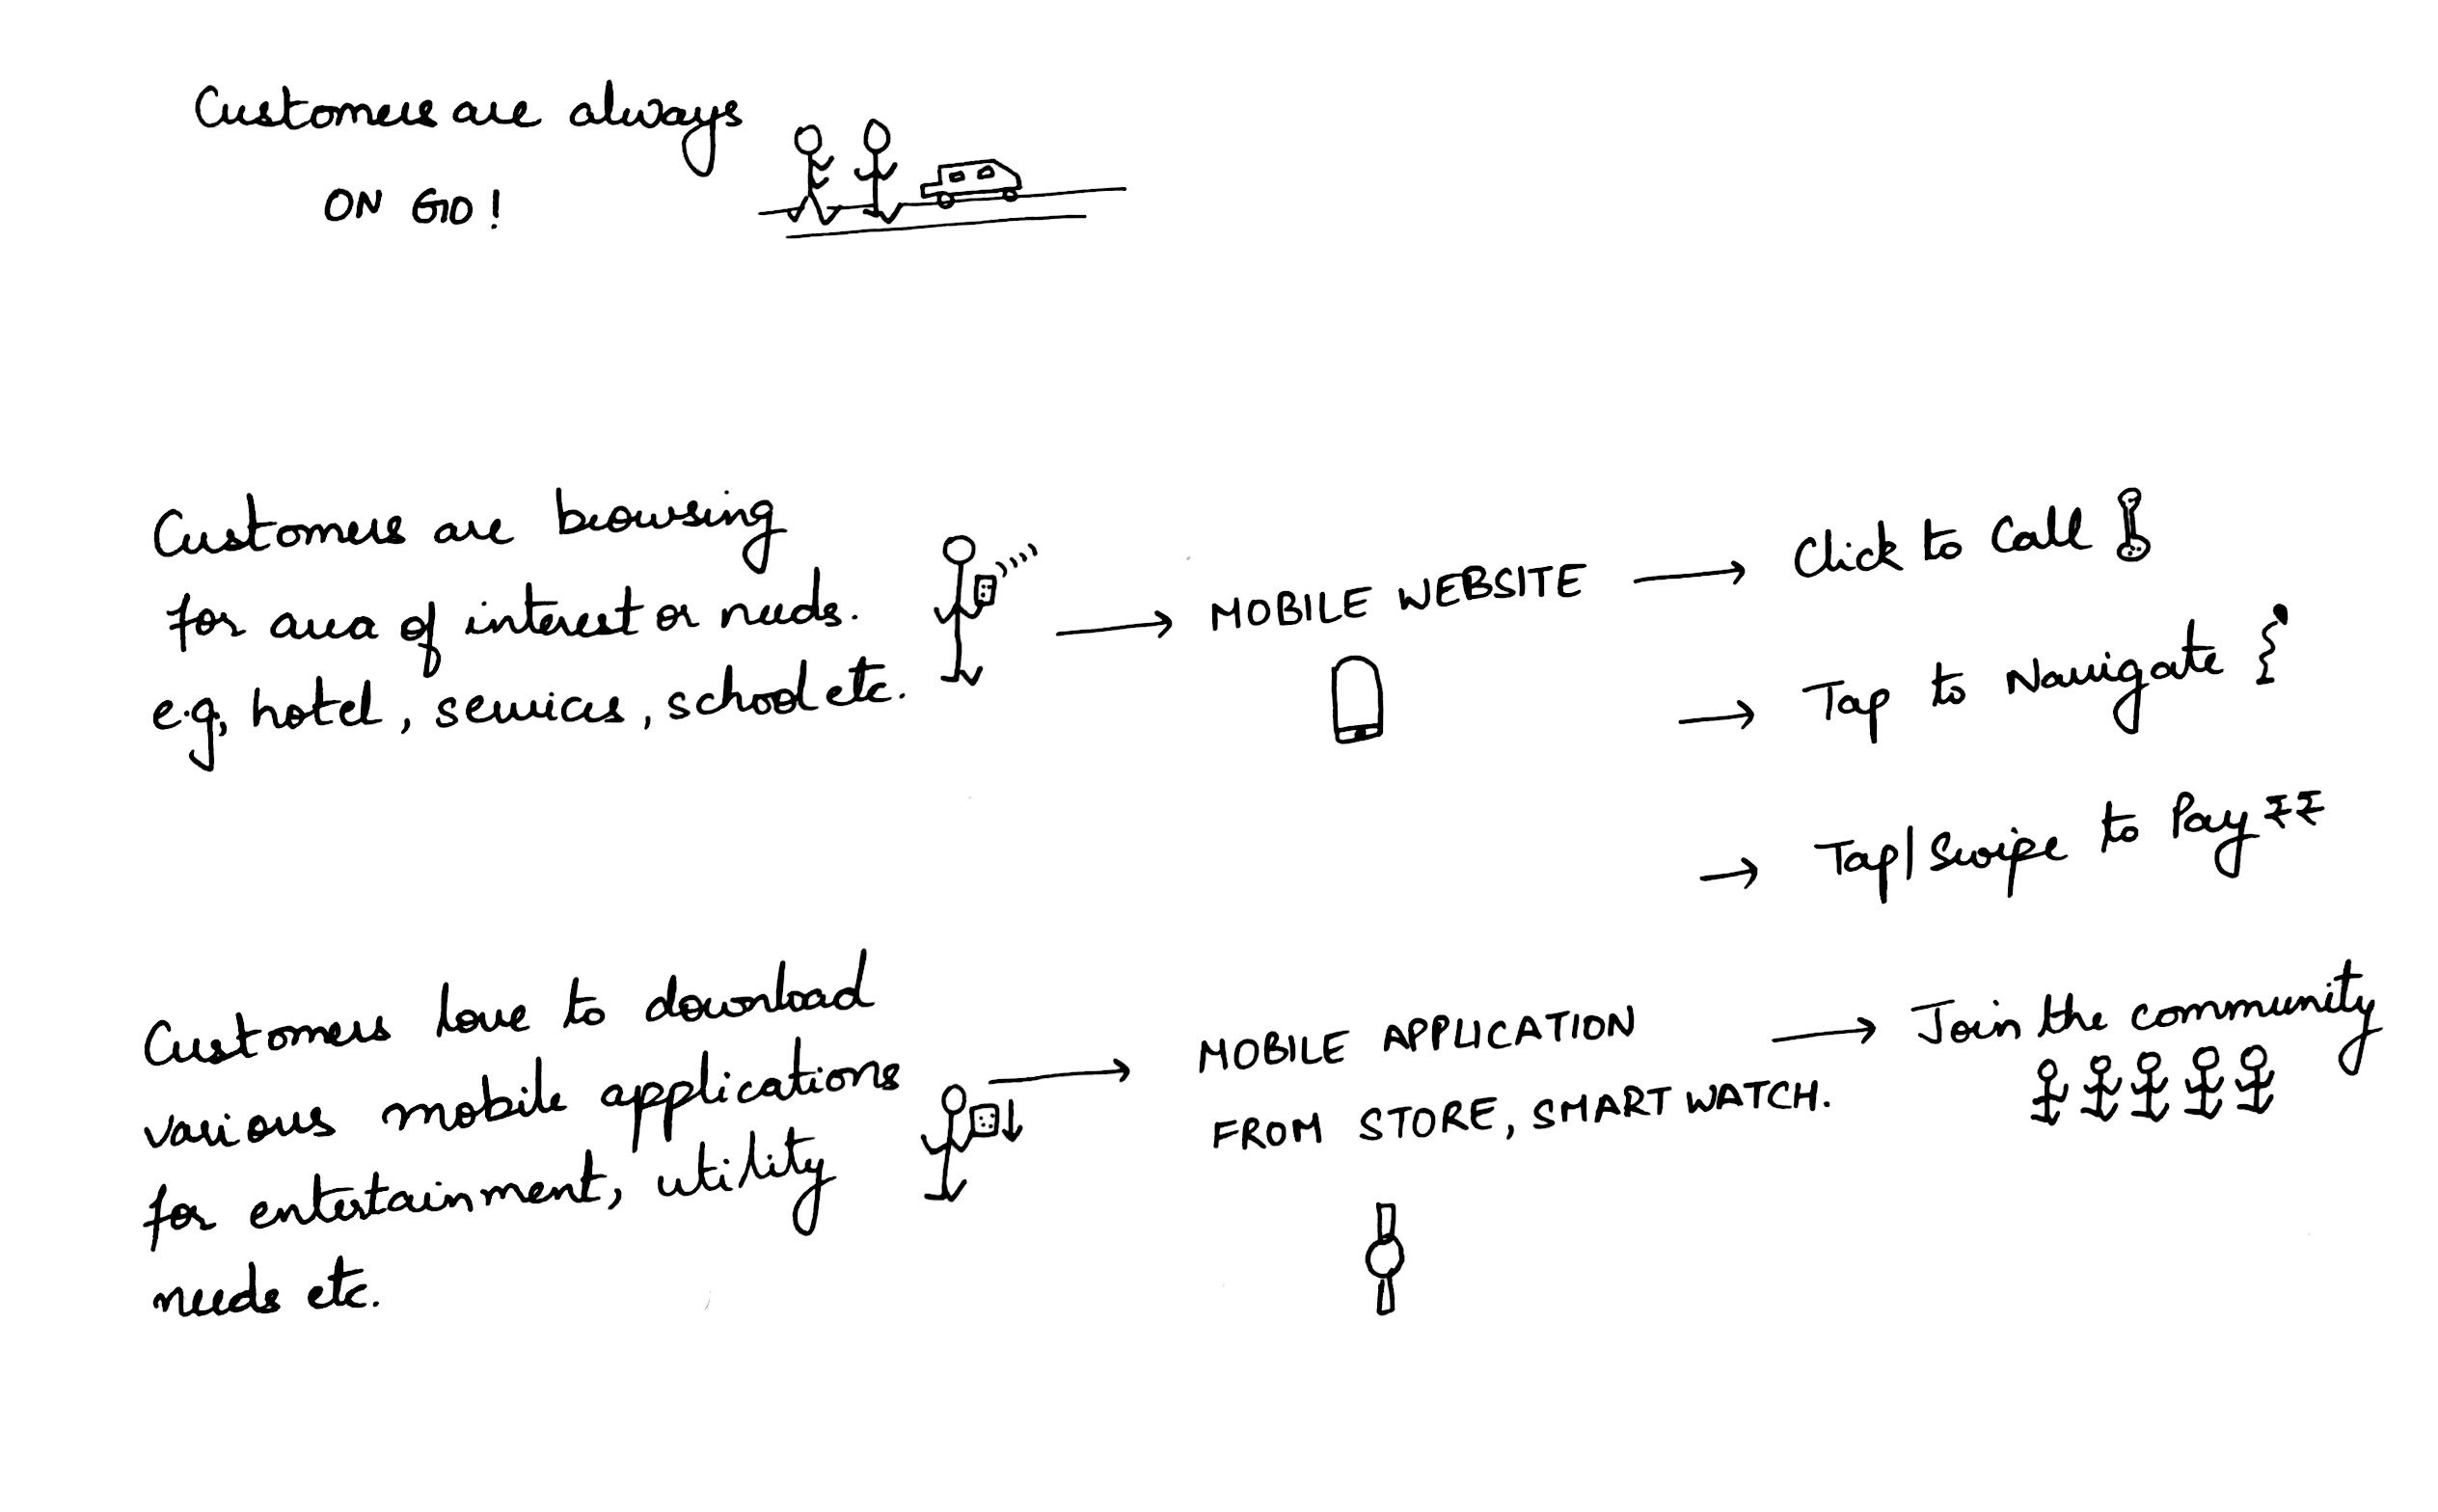 Customers are always
ON GO!
Customers are browsing
for area of interest or needs.
e.g, hotel, services, school etc.
MOBILE WEBSITE
Click to Call
Tap to Navigate
Tap/Swipe to Pay ₹₹
Customers love to download
various mobile applications
for entertainment, utility
needs etc.
MOBILE APPLICATION
FROM STORE, SMART WATCH.
Join the community